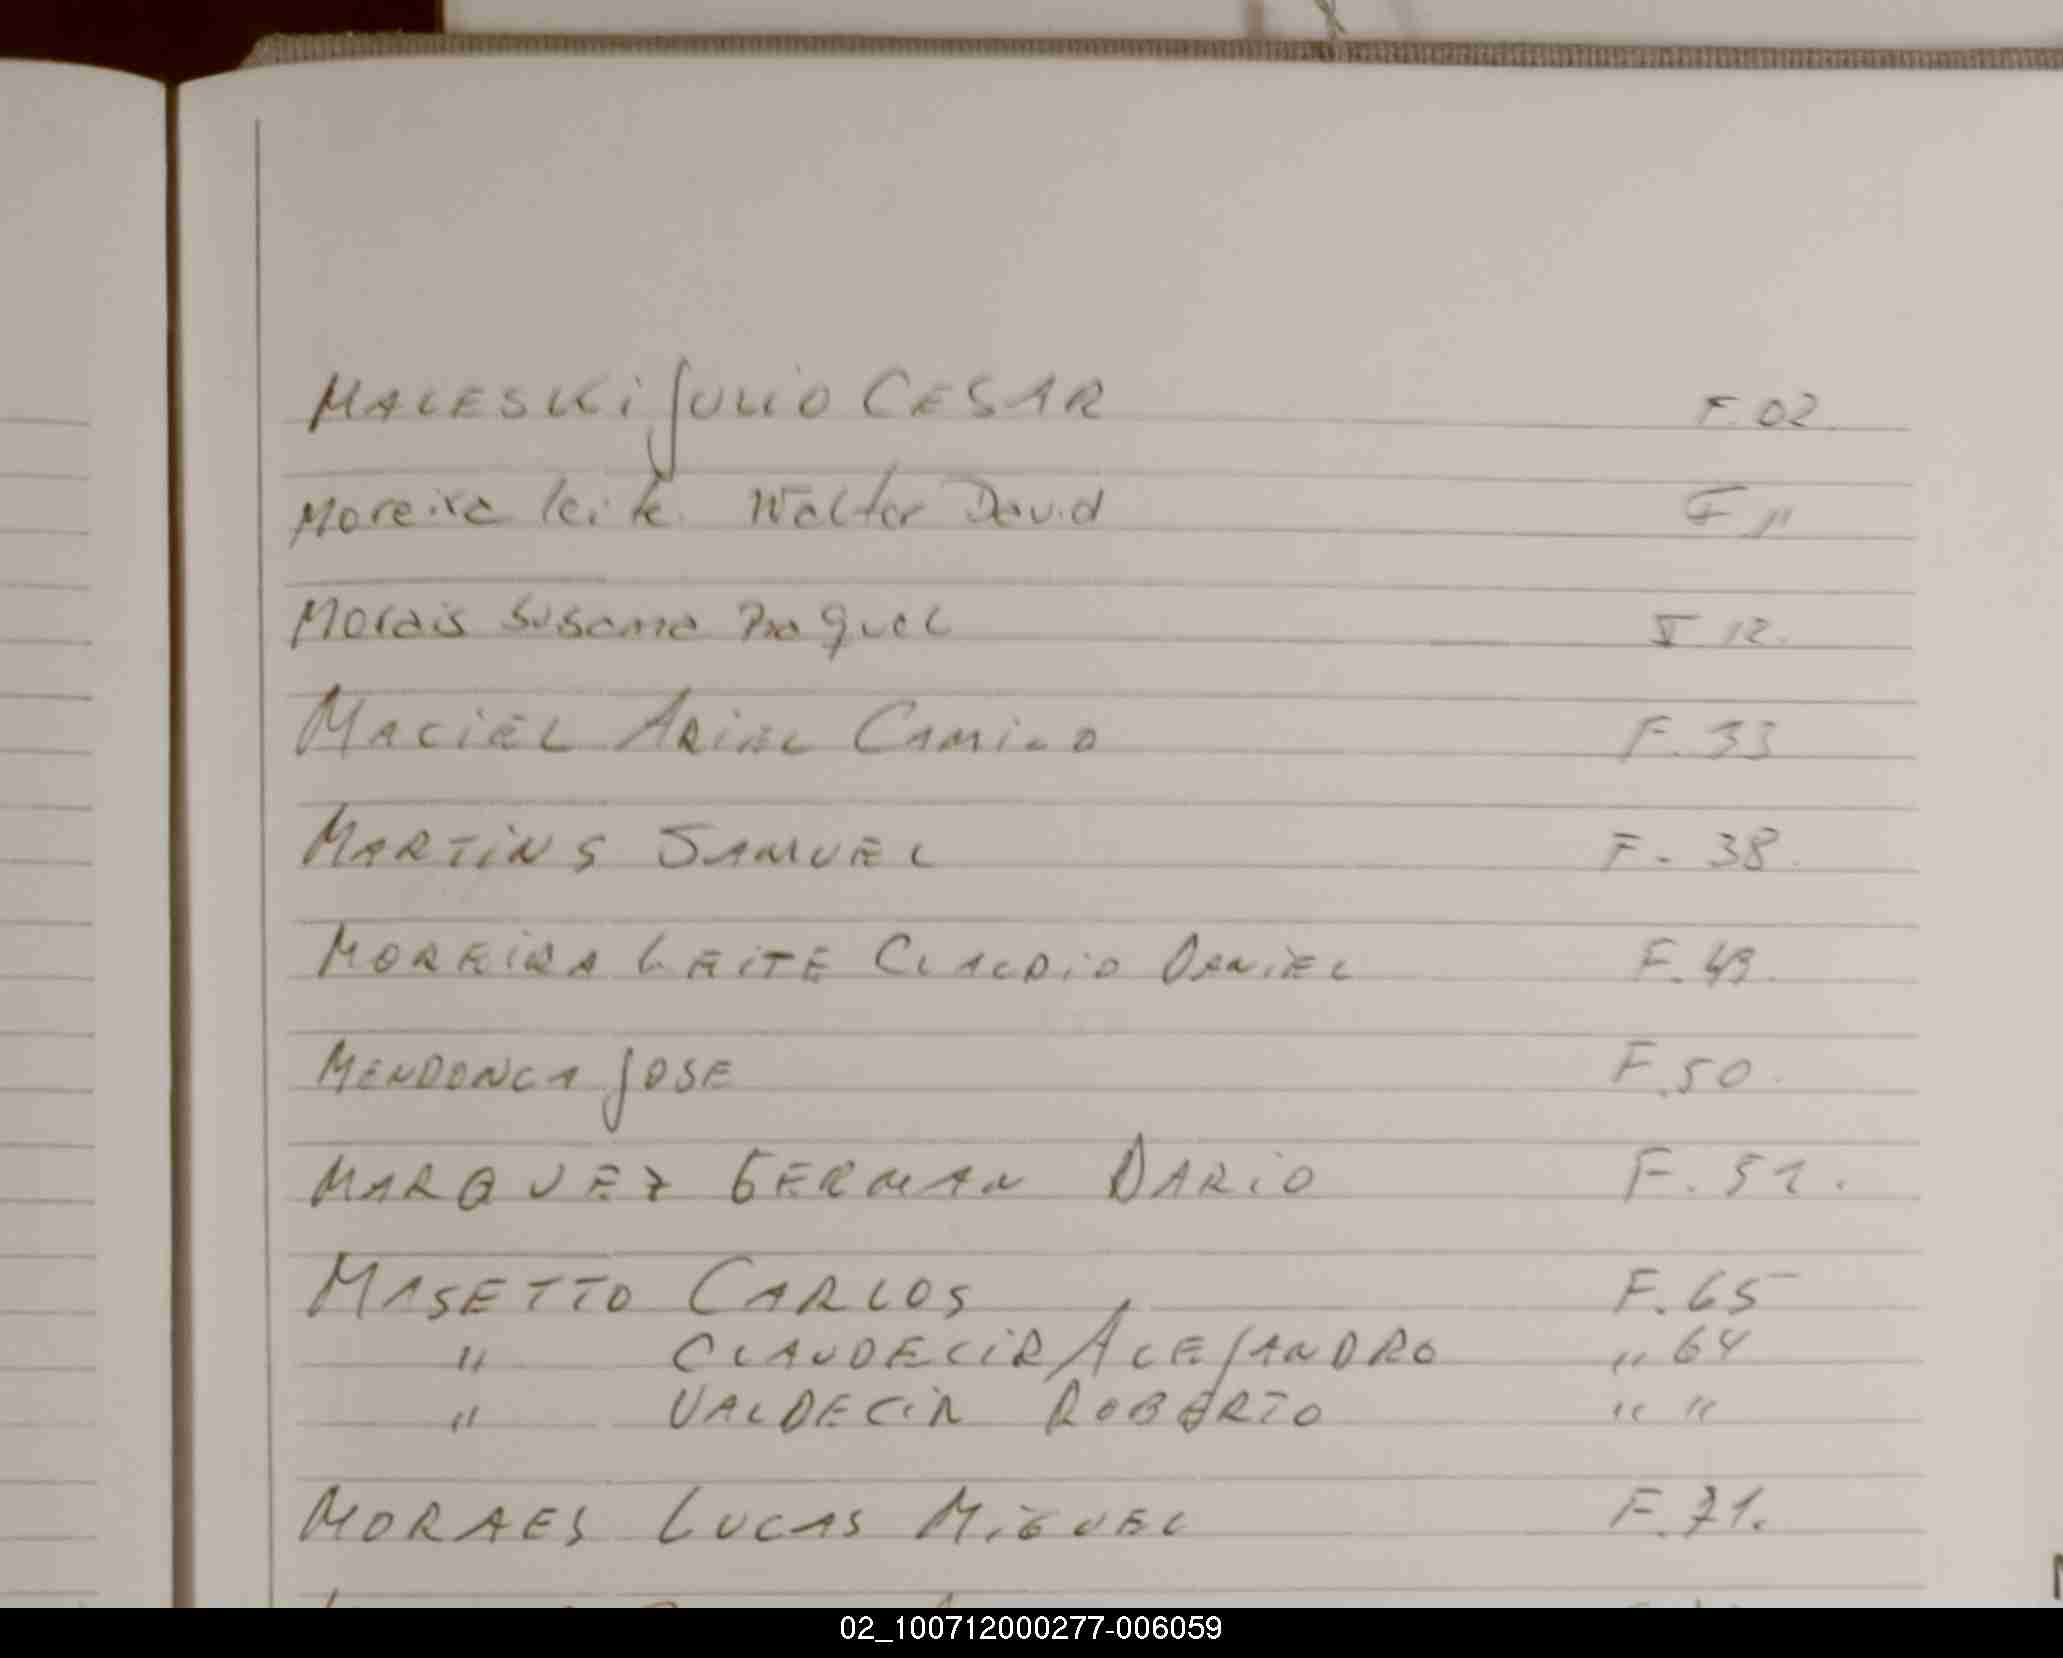 MALESKi JULiO CESAR F. 02
Moreira leite Walter David F 11
Morais Susana Raquel F 12.
MACiEL ARiEL CAMiLO F. 33
MARTiNS SAMUEL F. 38.
MOREiRA LEiTE CLAUDiO DANiEL F. 49.
MENDONCA JOSE F. 50.
MARQUEZ GERMAN DARiO F. 51.
MASETTO CARLOS F. 65
" CLAUDECiR ALEJANDRO " 64
" VALDECiR ROBERTO " "
MORAES LUCAS MiGUEL F. 71.
02_100712000277-006059